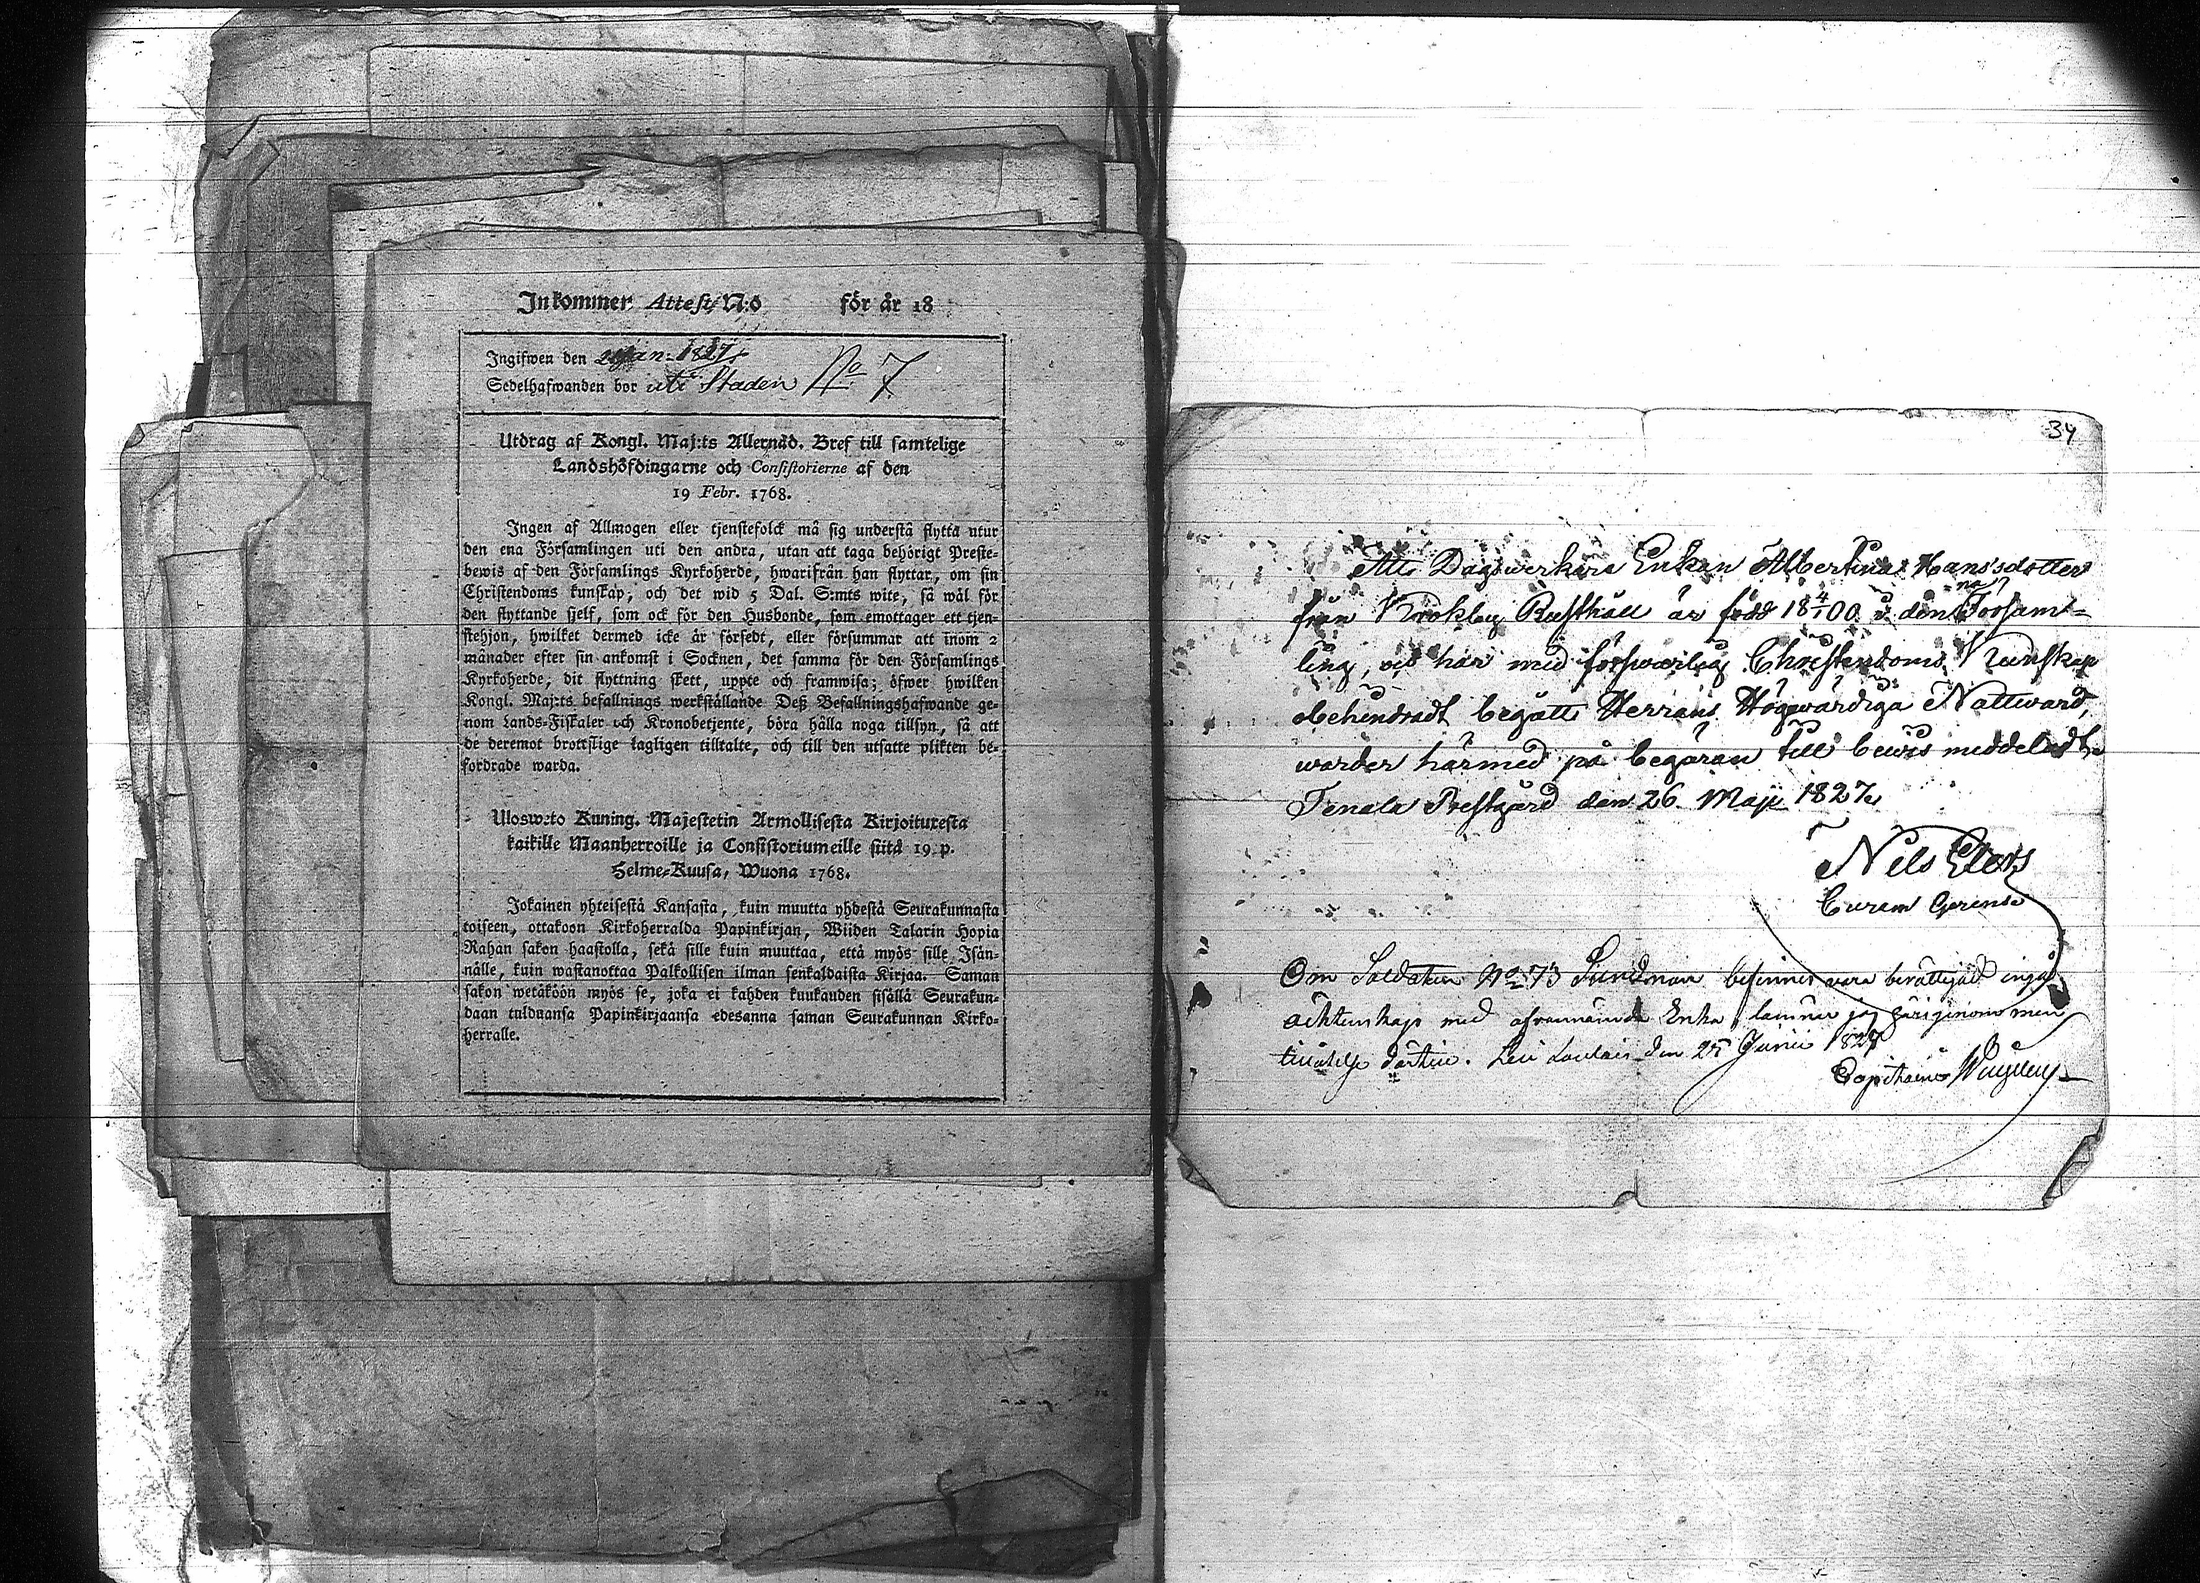 Inkommer Attest N:o för år 18
Ingifwen den Jan. 1827
Sedelhafwanden bor uti Staden No 7
Utdrag af Kongl. Maj:ts Allernåd. Bref till samtelige
Landshöfdingarne och Consistorierne af den
19 Febr. 1768.
Ingen af Allmogen eller tjenstefolck må sig understå flytta utur
den ena Församlingen uti den andra, utan att taga behörigt Preste-
bewis af den Församlings Kyrkoherde, hwarifrån han flyttar, om sin
Christendoms kunskap, och det wid 5 Dal. S:mts wite, så wäl för
den flyttande sjelf, som ock för den Husbonde, som emottager ett tjen-
stehjon, hwilket dermed icke är försedt, eller försummar att inom 2
månader efter sin ankomst i Socknen, det samma för den Församlings
Kyrkoherde, dit flyttning skett, uppte och framwisa; öfwer hwilken
Kongl. Maj:ts befallnings werkställande Deß Befallningshafwande ge-
nom Lands-Fiskaler och Kronobetjente, böra hålla noga tillsyn, så att
de deremot brottslige lagligen tilltalte, och till den utsatte plikten be-
fordrade warda.
Ulosweto Kuning. Majestetin Armollisesta Kirjoituresta
kaikille Maanherroille ja Consistoriumeille siitä 19. p.
Helme-Kuusa, Wuona 1768.
Jokainen yhteisestä Kansasta, kuin muutta yhdestä Seurakunnasta
toiseen, ottakoon Kirkoherralda Papinkirjan, Wiiden Talarin Hopia
Rahan sakon haastolla, sekä sille kuin muuttaa, että myös sille Isän-
nälle, kuin wastanottaa Palkollisen ilman senkaldaista Kirjaa. Saman
sakon wetäköön myös se, joka ei kahden kuukauden sisällä Seurakun-
daan tulduansa Papinkirjaansa edesanna saman Seurakunnan Kirko-
herralle.
34
Att Dagswerkare Enkan Albertina Hansdotter
från Krokby Rusthåll är född 18 4/1 00 i den̄a Försam-
ling, och har med förswarlig Christendoms Kunskap
obehindradt begått Herrans Högwärdiga Nattward,
warder härmed på begäran till bewis meddeladt.
Tenala Prestgård den 26 Maji 1827.
Nils
Curam Gerens
Om Soldaten No 73 Sundman befinnes vara berättigad ingå
äktenskap med ofvannämde Enka, lämnar jag härigenom men
tillåtelse därtill. den 25 Junii 1827
Capitaine